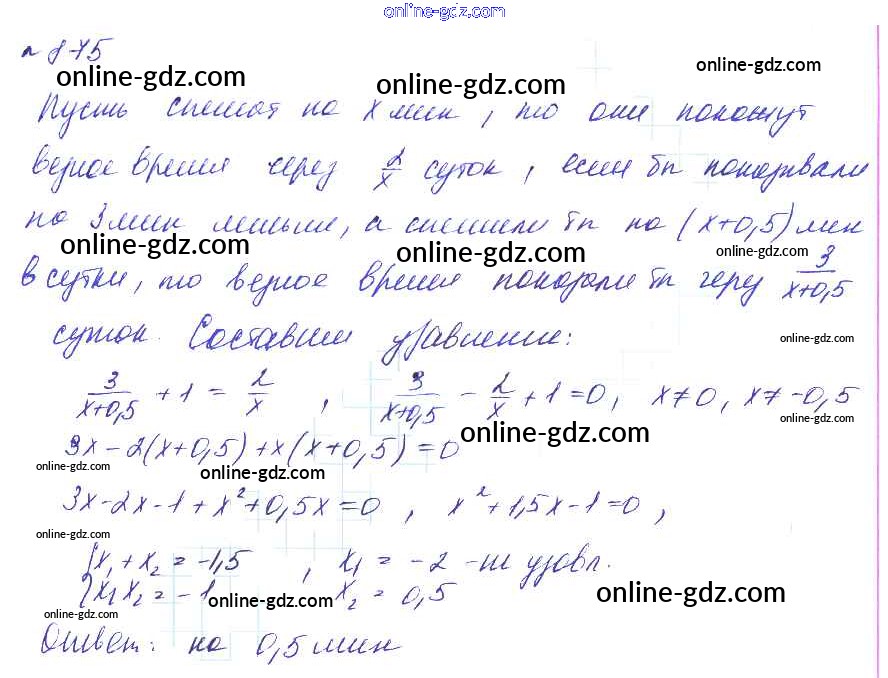 online-gdz.com
№ 875
online-gdz.com online-gdz.com online-gdz.com
Пусть спешат на x мин, то они покажут
верное время через 2/x суток, если бы показывали
на 3 мин меньше, а спешили бы на (x+0,5) мин
online-gdz.com online-gdz.com online-gdz.com
в сутки, то верное время показали бы через 3/(x+0,5)
суток. Составим уравнение:
online-gdz.com
3/(x+0,5) + 1 = 2/x , 3/(x+0,5) - 2/x + 1 = 0, x≠0, x≠-0,5
online-gdz.com
3x - 2(x+0,5) + x(x+0,5) = 0
online-gdz.com
online-gdz.com online-gdz.com
3x - 2x - 1 + x² + 0,5x = 0 , x² + 1,5x - 1 = 0 ,
online-gdz.com
{x₁ + x₂ = -1,5 , x₁ = -2 - не удовл.
{x₁x₂ = -1 x₂ = 0,5
online-gdz.com online-gdz.com
online-gdz.com
Ответ: на 0,5 мин